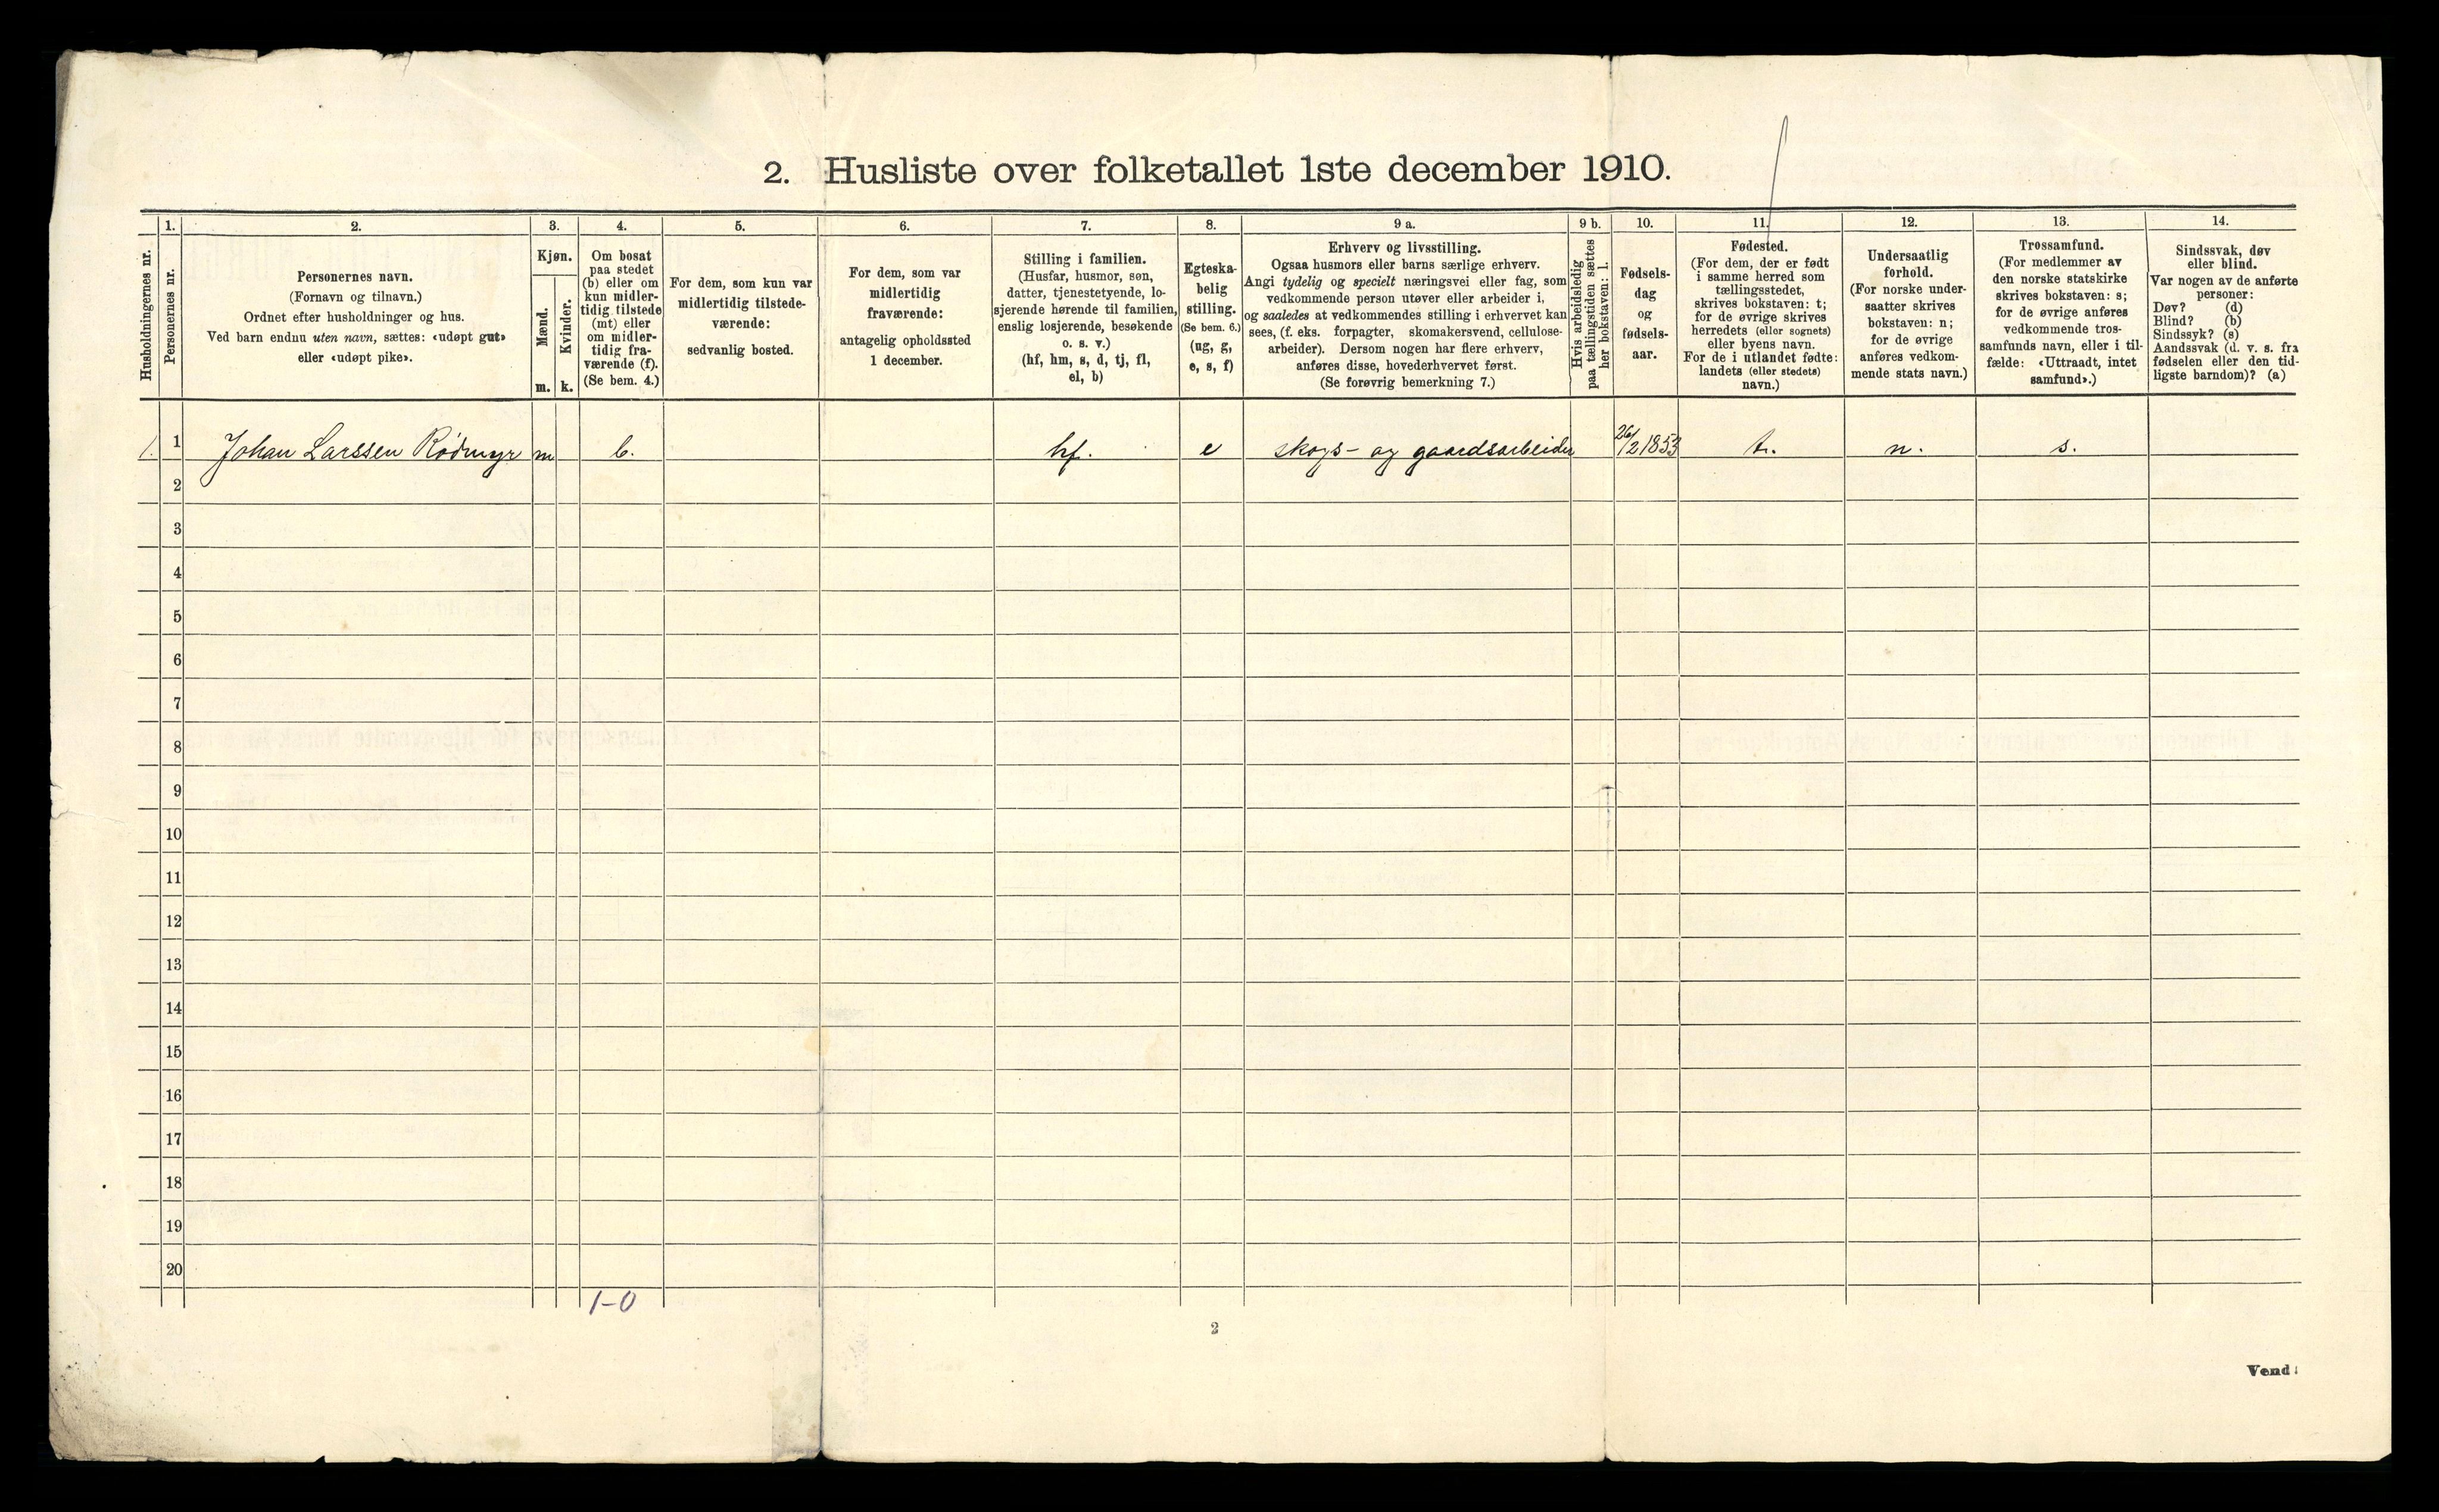 2. Husliste over folketallet 1ste december 1910.
Husholdningernes nr.
1.
Personernes nr.
2.
Personernes navn.
(Fornavn og tilnavn.)
Ordnet efter husholdninger og hus.
Ved barn endnu uten navn, sættes: «udøpt gut»
eller «udøpt pike».
3.
Kjøn.
Mænd.
Kvinder.
m. k.
4.
Om bosat
paa stedet
(b) eller om
kun midler-
tidig tilstede
(mt) eller
om midler-
tidig fra-
værende (f).
(Se bem. 4.)
5.
For dem, som kun var
midlertidig tilstede-
værende:
sedvanlig bosted.
6.
For dem, som var
midlertidig
fraværende:
antagelig opholdssted
1 december.
7.
Stilling i familien.
(Husfar, husmor, søn,
datter, tjenestetyende, lo-
sjerende hørende til familien,
enslig losjerende, besøkende
o. s. v.)
(hf, hm, s, d, tj, fl,
el, b)
8.
Egteska-
belig
stilling.
(Se bem. 6.)
(ug, g,
e, s, f)
9 a.
Erhverv og livsstilling.
Ogsaa husmors eller barns særlige erhverv.
Angi tydelig og specielt næringsvei eller fag, som
vedkommende person utøver eller arbeider i,
og saaledes at vedkommendes stilling i erhvervet kan
sees, (f. eks. forpagter, skomakersvend, cellulose-
arbeider). Dersom nogen har flere erhverv,
anføres disse, hovederhvervet først.
(Se forøvrig bemerkning 7.)
9 b.
Hvis arbeidsledig
paa tællingstiden sættes
her bokstaven: l.
10.
Fødsels-
dag
og
fødsels-
aar.
11.
Fødested.
(For dem, der er født
i samme herred som
tællingsstedet,
skrives bokstaven: t;
for de øvrige skrives
herredets (eller sognets)
eller byens navn.
For de i utlandet fødte:
landets (eller stedets)
navn.)
12.
Undersaatlig
forhold.
(For norske under-
saatter skrives
bokstaven: n;
for de øvrige
anføres vedkom-
mende stats navn.)
13.
Trossamfund.
(For medlemmer av
den norske statskirke
skrives bokstaven: s;
for de øvrige anføres
vedkommende tros-
samfunds navn, eller i til-
fælde: «Uttraadt, intet
samfund».)
14.
Sindssvak, døv
eller blind.
Var nogen av de anførte
personer:
Døv? (d)
Blind? (b)
Sindssyk? (s)
Aandssvak (d. v. s. fra
fødselen eller den tid-
ligste barndom)? (a)
1. 1 Johan Larssen Rødmyr m b. hf. e skogs- og gaardsarbeider 26/2 1853 t. n. s.
2
3
4
5
6
7
8
9
10
11
12
13
14
15
16
17
18
19
20
1-0
2
Vend!